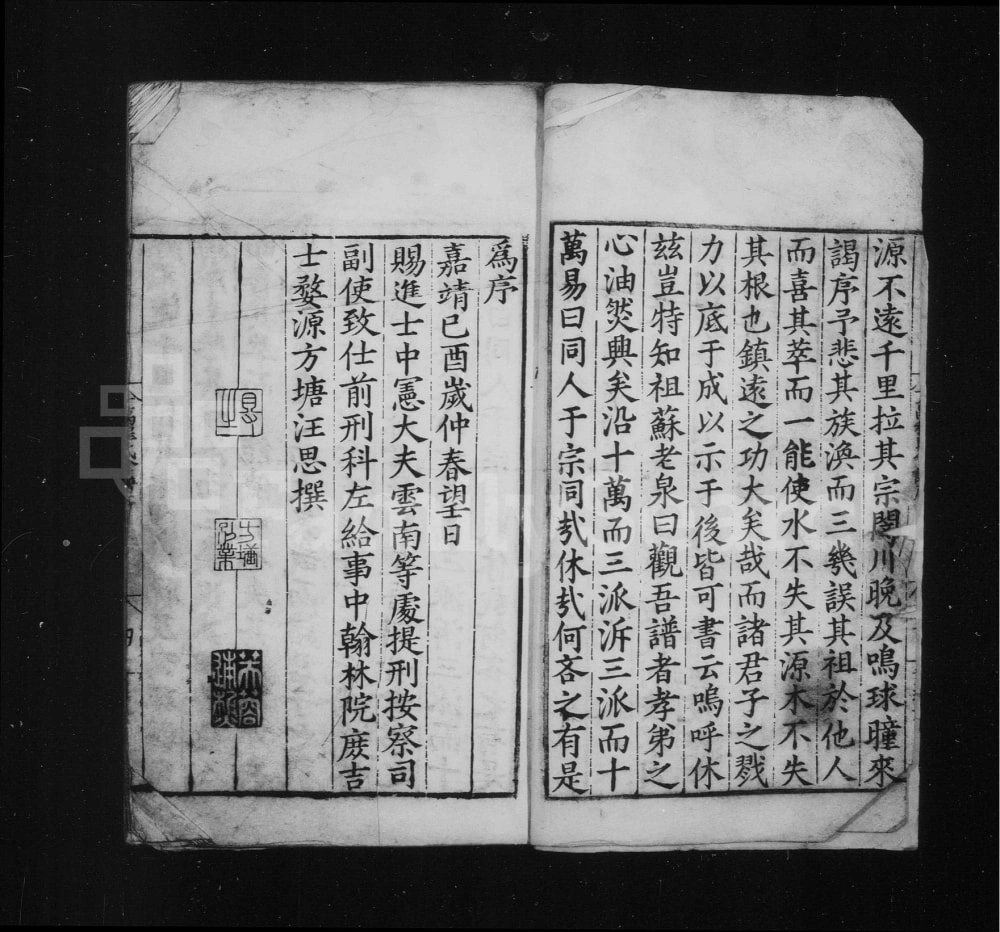 源不逺千里拉其宗閿川晚及鳴球曈來
謁序予悲其族渙而三幾誤其祖於他人
而喜其萃而一能使水不失其源木不失
其根也鎮逺之功大矣哉而諸君子之戮
力以底于成以示于後皆可書云嗚呼休
兹豈特知祖蘇老泉曰觀吾譜者孝弟之
心油焂興矣沿十萬而三派泝三派而十
萬易曰同人于宗同㢤休㢤何吝之有是
爲序
嘉靖己酉嵗仲春望日
賜進士中憲大夫雲南等處提刑按察司
副使致仕前刑科左給事中翰林院庻吉
士婺源方塘汪思撰